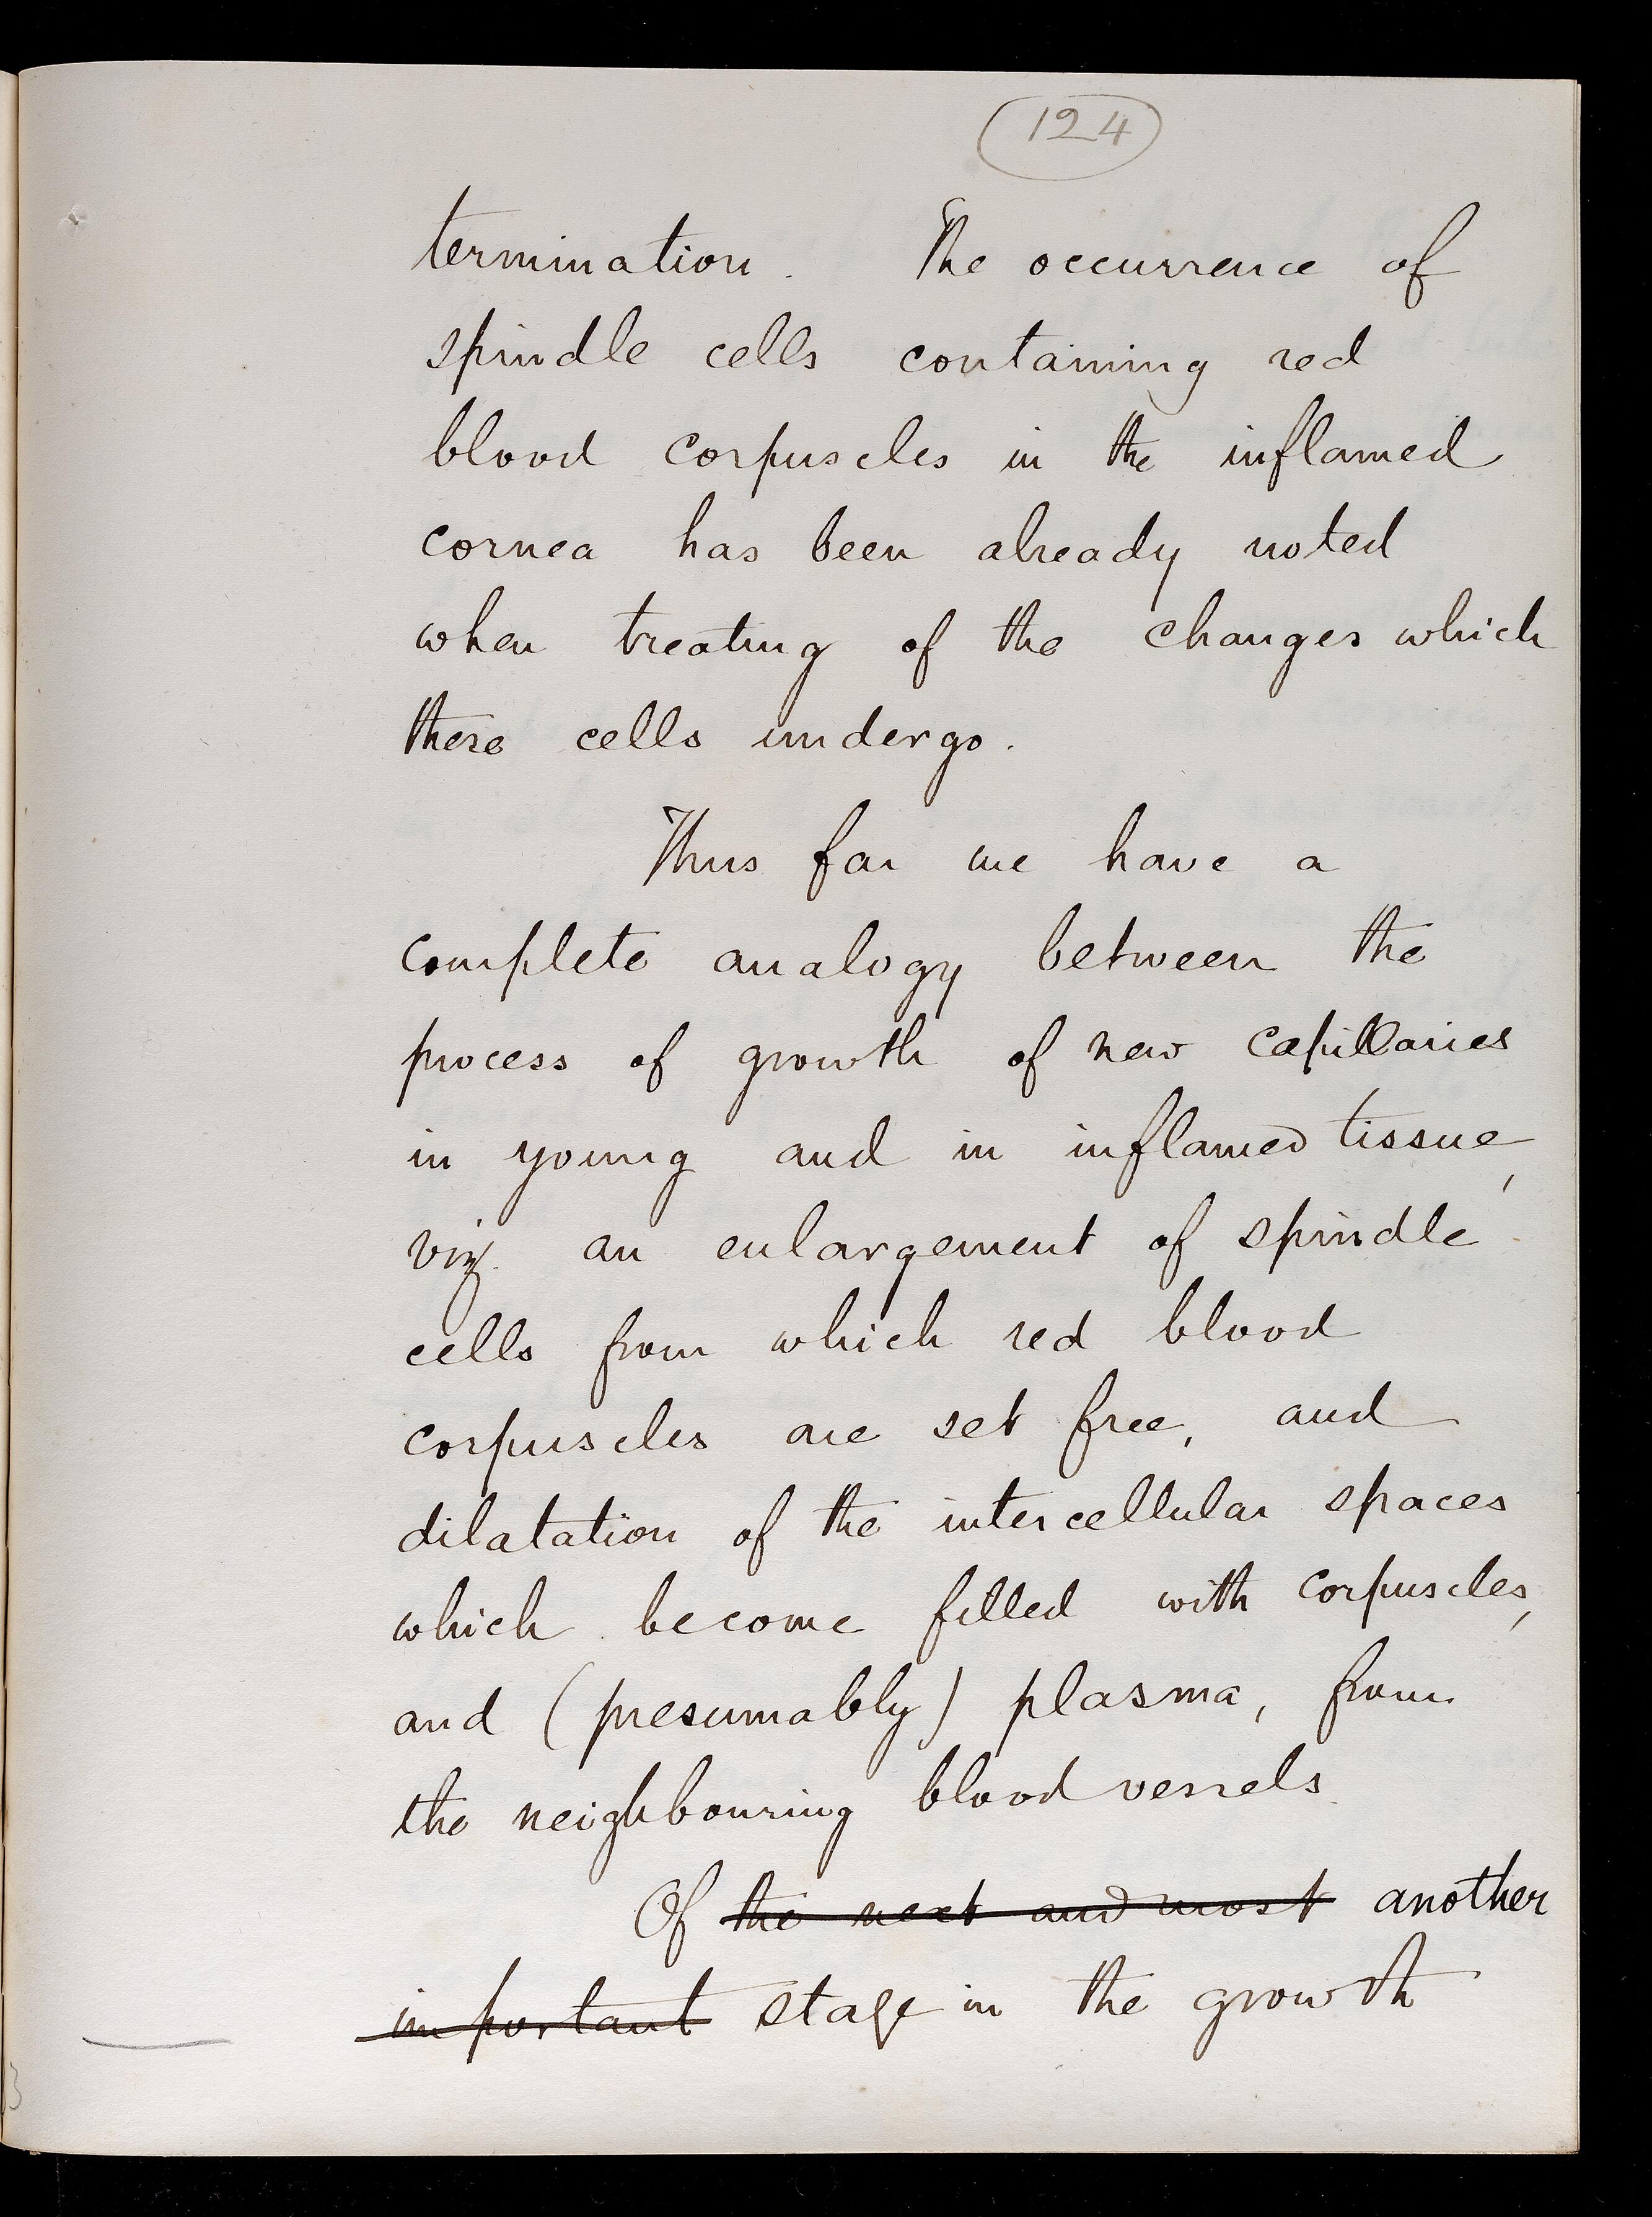 124
termination. The occurrence of
spindle cells containing red
blood corpuscles in the inflamed
cornea has been already noted
when treating of the changes which
these cells undergo.
Thus far we have a
complete analogy between the
process of growth of new capillaries
in young and in inflamed tissue,
viz. an enlargement of spindle
cells from which red blood
corpuscles are set free, and
dilatation of the intercellular spaces
which become filled with corpuscles,
and (presumably) plasma, from
the neighbouring blood vessels.
Of the next and most another
important stage in the growth